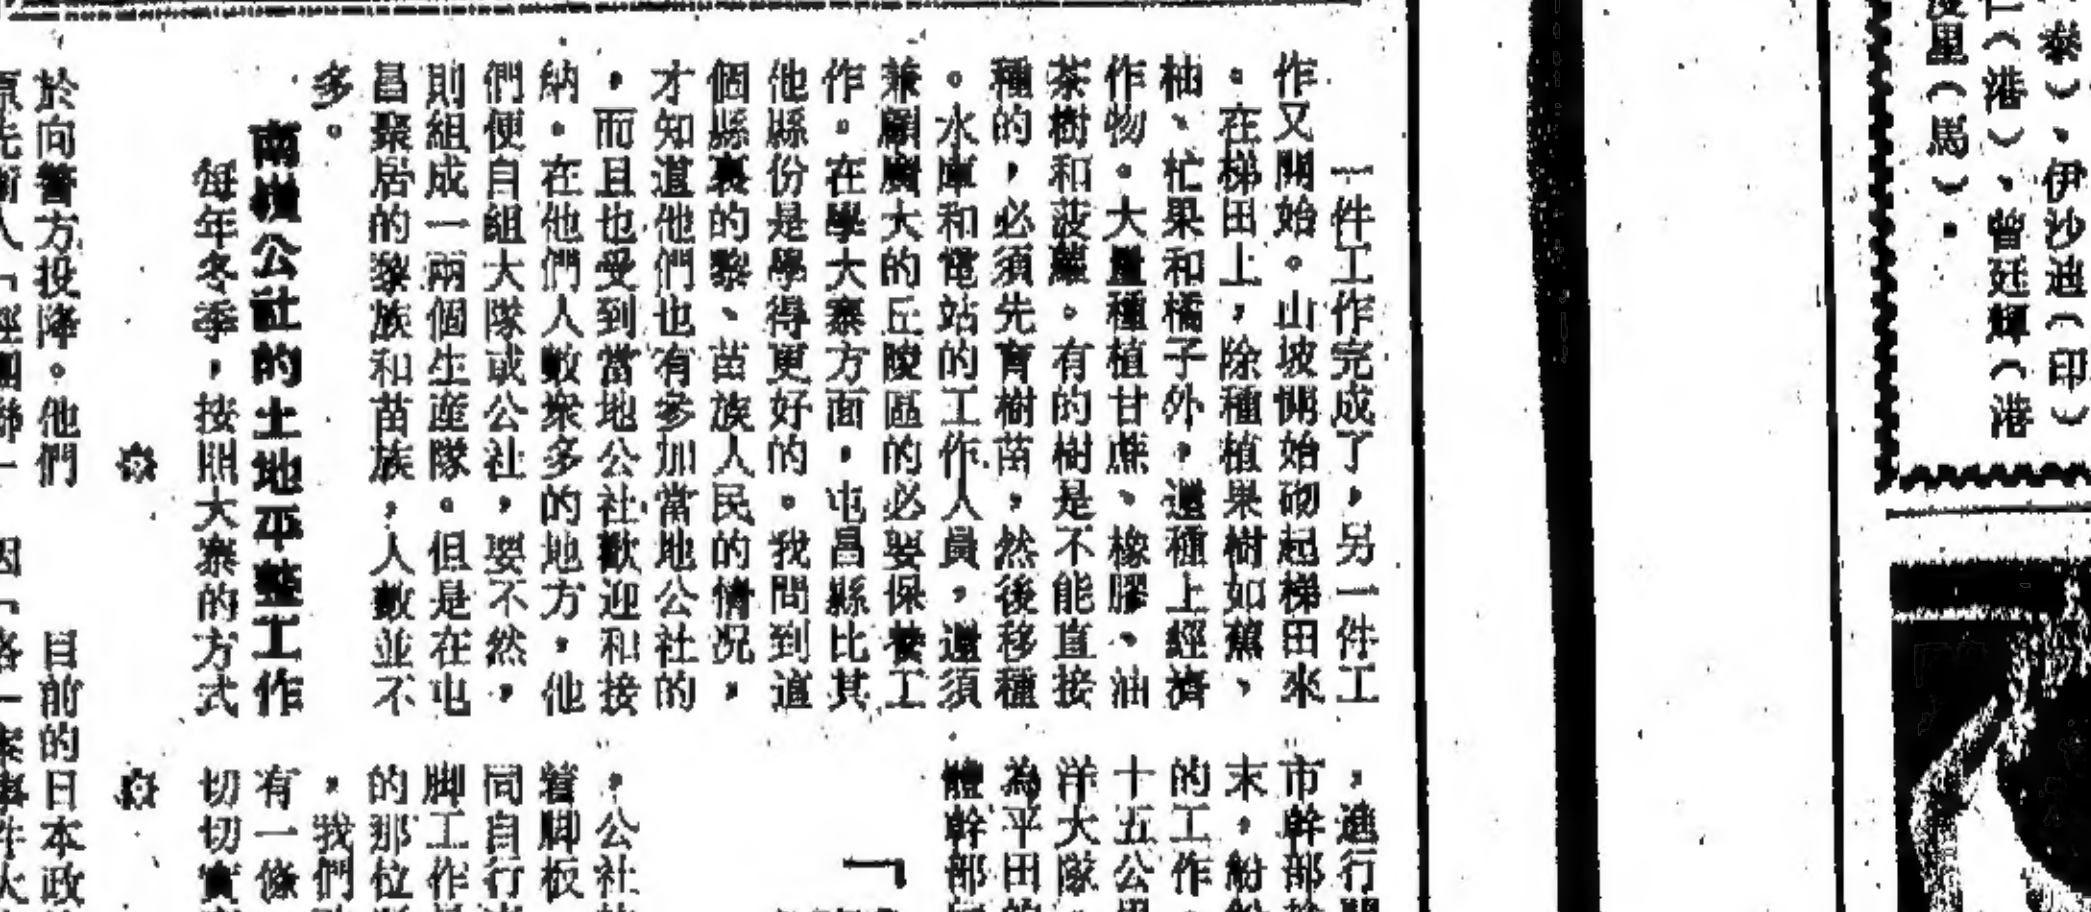 一件工作完成了，另一件工
作又開始。山坡開始砌起梯田來
。在梯田上，除種植果樹如蕉、
柚、杧果和橘子外，還種上經濟
作物。大量種植甘蔗、橡膠、油
茶樹和菠蘿。有的樹是不能直接
種的，必須先育樹苗，然後移種
。水庫和電站的工作人員，還須
兼顧廣大的丘陵區的必要保養工
作。在學大寨方面，屯昌縣比其
他縣份是學得更好的。我問到這
個縣裏的黎、苗族人民的情況，
才知道他們也有參加當地公社的
，而且也受到當地公社歡迎和接
納。在他們人數衆多的地方，他
們便自組大隊或公社，要不然，
則組成一兩個生產隊。但是在屯
昌聚居的黎族和苗族，人數並不
多。
南嶺公社的土地平整工作
每年冬季，按照大寨的方式
，進行
市幹部
末，紛
的工作
十五公里
洋大隊
為平田的
體幹部
，公社
着脚板
同自行
脚工作
的那位
，我們
有一條
切切實
於向警方投降。他們
目前的日本政
泰）、伊沙迪（印）
（港）、曾廷輝（港
里（馬）。